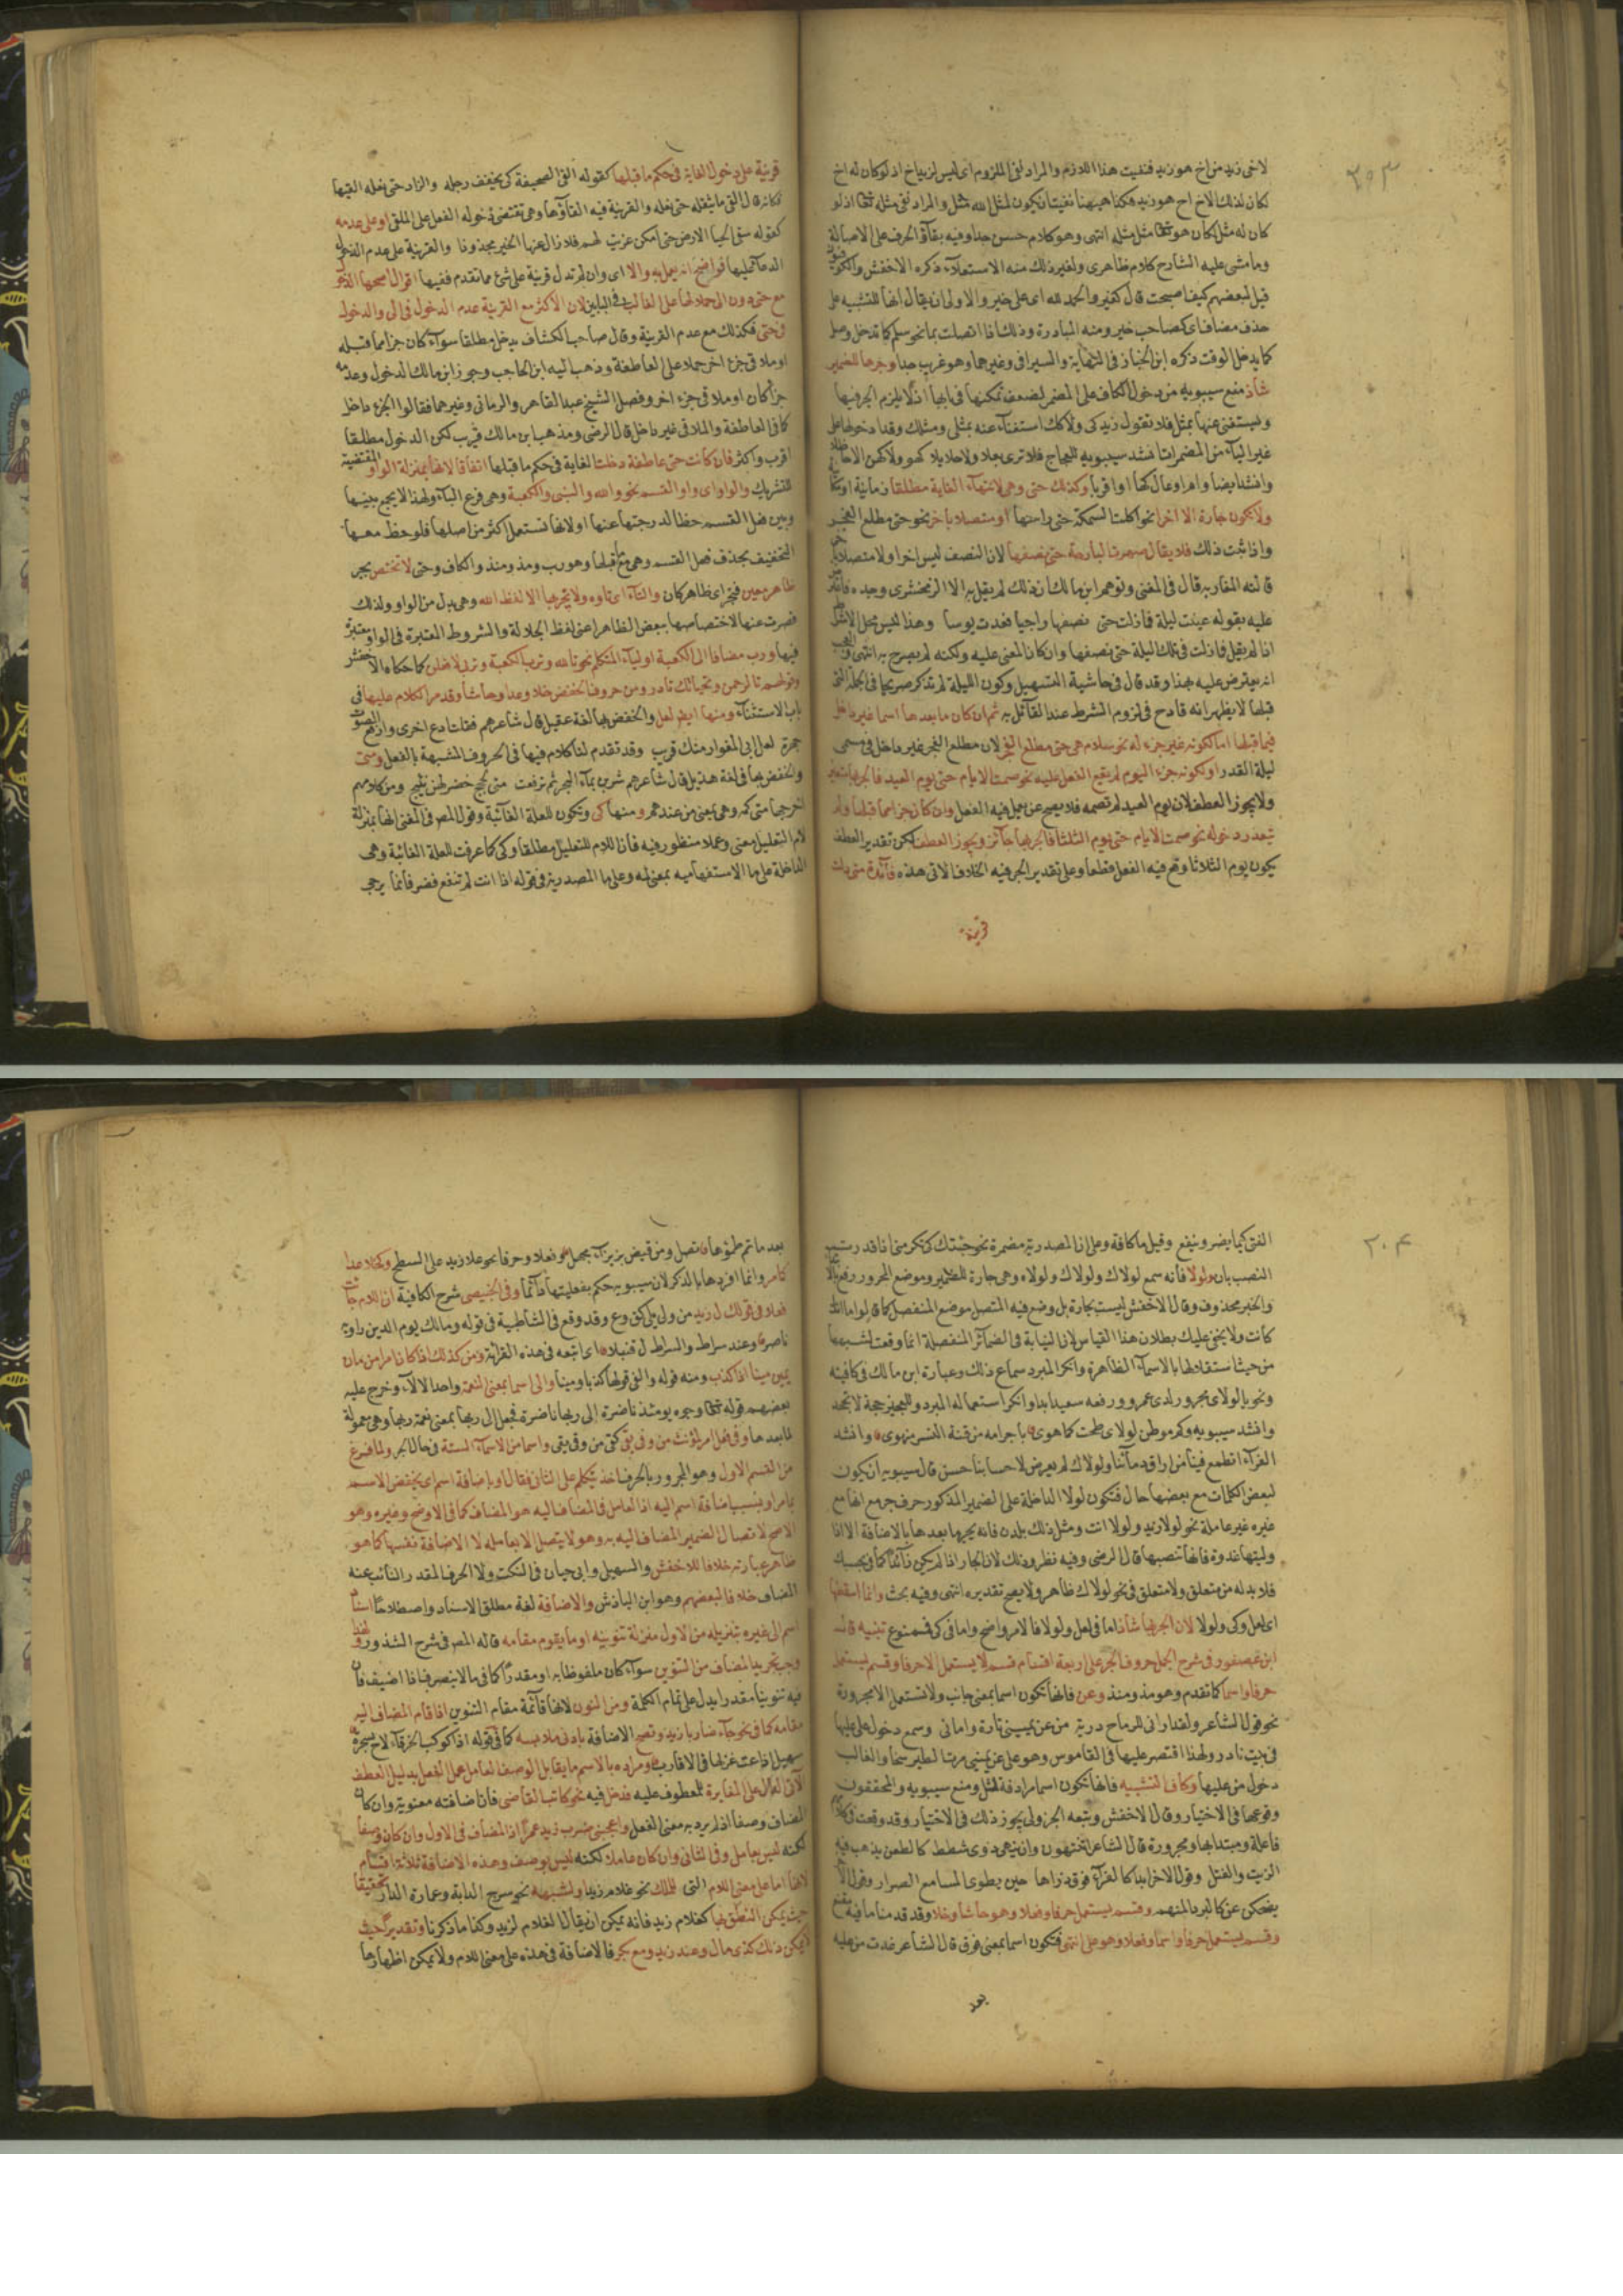 ٣٠٣
لاخى زيد من اخ هو زيد فنفيت هذا اللازم والمراد نفى الملزوم اى ليس لزيد اخ اذ لو كان له اخ
لكان لذلك الاخ اخ هو زيد فكذا ههنا نفيت ان يكون لمثل الله مثل والمراد نفى مثله تعالى اذ لو
كان له مثل لكان هو تعالى مثل مثله انتهى وهو كلام حسن جدا وفيه بقاء الحرف على الاصالة
وما مشى عليه الشارح كلام ظاهرى ولغير ذلك منه الاستعلاء ذكره الاخفش والكوفيون
قيل لبعضهم كيف اصبحت قال كخير والحمد لله اى على خير والاولى ان يقال انها للتشبيه على
حذف مضاف اى كصاحب خير ومنه المبادرة وذلك اذا اتصلت بما نحو سلم كما تدخل وصل
كما يدخل الوقت ذكره ابن الخباز فى النهاية والسيرافى وغيرهما وهو غريب جدا وجرها للضمير
شاذ منع سيبويه من دخول الكاف على المضمر لضعف تمكنها فى بابها
وليستغنى عنها بمثل فلا تقول زيد كى ولا كك استغناء عنه بمثلى ومثلك وقد ادخولها على
غير الياء من المضمرات انشد سيبويه للعجاج فلا ترى بعلا ولا حلايلا كهو ولا كهن الا حاظلا
وانشد ايضا وام اوعال كها او اقربا وكذلك حتى وهى لانتهاء الغاية مطلقا زمانية او
ولا يكون جارة الا اخرا نحو اكلت السمكة حتى راسها او متصلا باخر نحو حتى مطلع الفجر
واذا ثبت ذلك فلا يقال سهرت البارحة حتى نصفها لان النصف ليس اخرا ولا متصلا به
قالته المغاربة قال فى المغنى وتوهم ابن مالك ان ذلك لم يقل به الا الزمخشرى وحده
عليه بقوله عينت ليلة فما زلت حتى نصفها راجيا فعدت يوسا وهذا ليس محل الاشتراط
اذ لم يقل فما زلت فى تلك الليلة حتى نصفها وان كان المعنى عليه ولكنه لم يصرح به انتهى
انه يعترض عليه بهذا وقد قال فى حاشية التسهيل وكون الليلة لم تذكر صريحا فى الجملة التى
قبلها لا يظهر انه قادح فى لزوم الشرط عند القائل به ثم ان كان ما بعدها اسما غير داخل
فيما قبلها اما لكونه غير جزء له نحو سلام هى حتى مطلع الفجر لان مطلع الفجر غير داخل فى مسمى
ليلة القدر او لكونه جزء اليوم لم يقع الفعل عليه نحو صمت الايام حتى يوم العيد فالجر بها متعين
ولا يجوز العطف لان يوم العيد لم تصمه فلا يصح عن يعمل فيه الفعل وان كان جزا مما قبلها ولم
يتعذر دخوله نحو صمت الايام حتى يوم الثلثا فالجر بها جائز ويجوز العطف لكن تقدير العطف
يكون يوم الثلاثا وقع فيه الفعل قطعا وعلى تقدير الجر فيه الخلاف الاتى هذه فائدة متى دلت
قرينة
قرينة على دخول الغاية فى حكم ما قبلها كقوله القى الصحيفة كى يخفف رحله والزاد حتى نعله القيها
فكانه قال القى ما يثقله حتى نعله والقرينة فيه القاؤها وهى تقتضى دخوله الفعل على الملقى او على عدمه
كقوله سقى الحيا الارض حتى امكن عزيت لهم فلا زال عنها الخير مجذوذا والقرينة على عدم الدخول
الدعاء عليها فواضح انه يعمل به والا اى وان لم تدل قرينة على شئ مما تقدم ففيها اقوال اصحها الدخول
مع حتى دون الى حملا لها على الغالب فى البابين لان الاكثر مع القرينة عدم الدخول فى الى والدخول
فى حتى فكذلك مع عدم القرينة وقال صاحب الكشاف يدخل مطلقا سواء كان جزا مما قبله
او ملاقى جزء اخر حملا على العاطفة وذهب اليه ابن الحاجب وجوز ابن مالك الدخول وعدمه
جزا كان او ملاقى جزء اخر وفصل الشيخ عبد القاهر والرمانى وغيرهما فقالوا الجزء داخل
كما فى العاطفة والملاقى غير داخل قال الرضى ومذهب ابن مالك قريب لكن الدخول مطلقا
اقرب واكثر فان كانت حتى عاطفة دخلت الغاية فى حكم ما قبلها اتفاقا لانها بمنزلة الواو المقتضية
للتشريك والواو اى واو القسم نحو والله والنبى والكعبة وهى فرع الباء ولهذا لا يجمع بينها
وبين فعل القسم حظا لدرجتها عنها او لانها تستعمل اكثر من اصلها فلوحظ معها
التخفيف بحذف فعل القسم وهى مع ما قبلها وهو رب ومذ ومنذ والكاف وحتى لا تختص بجر
ظاهر معين فتجر اى ظاهر كان والتاء اى تاؤه ولا يجر بها الا لفظ الله وهى بدل من الواو ولذلك
قصرت عنها لاختصاصها ببعض الظاهر اعنى لفظ الجلالة والشروط المعتبرة فى الواو معتبرة
فيها ورب مضافا الى الكعبة او لياء المتكلم نحو تالله وترب الكعبة وتربى لافعلن كما حكاه الاخفش
وقولهم تالرحمن وتحياتك نادر ومن حروف الخفض خلا وعدا وحاشا وقد مر الكلام عليها فى
باب الاستثناء ومنها ايضا لعل والخفض بها لغة عقيل قال شاعرهم فقلت ادع اخرى وارفع الصوت
جهرة لعل ابى المغوار منك قريب وقد تقدم لنا كلام فيها فى الحروف المشبهة بالفعل ومتى
والخفض بها فى لغة هذيل قال شاعرهم شربن بماء البحر ثم ترفعت متى لجج خضر لهن نئيج ومن كلامهم
اخرجها متى كمه وهى بمعنى من عندهم ومنها كى وتكون للعلة الغائية وقول المص فى المغنى انها بمنزلة
لام التعليل معنى وعملا منظور فيه فان اللام للتعليل مطلقا وكى كما عرفت للعلة الغائية وهى
الداخلة على ما الاستفهاميه بمعنى لمه وعلى ما المصدرية فى قوله اذا انت لم تنفع فضر فانما يرجى
٣٠٤
الفتى كيما يضر وينفع وقيل ما كافة وعلى ان المصدرية مضمرة نحو جئتك كى تكرمنى اذا قدرت
النصب بان ولولا فانه سمع لولاك ولولاك ولولاه وهى جارة للضمير وموضع المجرور رفع بالابتداء
والخبر محذوف وقال الاخفش ليست بجارة بل وضع فيه المتصل موضع المنفصل كما قالوا ما انا
كانت ولا يخفى عليك بطلان هذا القياس لان النيابة فى الضمائر المنفصلة انما وقعت لشبهها
من حيث استقلالها بالاسماء الظاهرة وانكر المبرد سماع ذلك وعبارة ابن مالك فى كافيته
ونحو بالولاى مجرور لدى عمرو ورفعه سعيد ابدا وانكر استعماله المبرد وللمجيز حجة لا تجحد
وانشد سيبويه وكم موطن لولاى طحت كما هوى باجرامه من قنة النيق منهوى وانشد
الفراء اتطمع فينا من اراق دمائنا ولولاك لم يعرض لاحسابنا حسن قال سيبويه ان يكون
لبعض الكلمات مع بعضها حال فتكون لولا الداخلة على الضمير المذكور حرف جر مع انها مع
غيره غير عاملة نحو لولا زيد ولولا انت ومثل ذلك بلدن فانه يجر بها بعدها بالاضافة الا اذا
وليتها غدوة فانها تنصبها قال الرضى وفيه نظر وذلك لان الجار اذا لم يكن زائدا كما فى بحسبك
فلا بد له من متعلق ولا متعلق فى نحو لولاك ظاهر ولا يصح تقديره انتهى وفيه بحث وانما اسقطها
اى لعل وكى ولولا لان الجر بها شاذ اما فى لعل ولولا فالامر واضح واما فى كى فممنوع تنبيه قال
ابن عصفور فى شرح الجمل حروف الجر على اربعة اقسام قسم لا يستعمل الا حرفا وقسم يستعمل
حرفا واسما كما تقدم وهو مذ ومنذ وعن فانها تكون اسما بمعنى جانب ولا تستعمل الا مجرورة
نحو قول الشاعر ولقد ارانى للرماح درية من عن يمينى تارة وامامى وسمع دخول على عليها
فى بيت نادر ولهذا اقتصر عليها فى القاموس وهو على عن يمينى مرت الطير سنحا والغالب
دخول من عليها وكاف التشبيه فانها تكون اسما مرادفة لمثل ومنع سيبويه والمحققون
وقوعها فى الاختيار وقال الاخفش وتبعه الجزولى يجوز ذلك فى الاختيار وقد وقعت
فاعلة ومبتدا بها ومجرورة قال الشاعر اتنتهون ولن ينهى ذوى شطط كالطعن يذهب فيه
الزيت والفتل
يضحكن عن كالبرد المنهم وقسم يستعمل حرفا وفعلا وهو حاشا وخلا وقد قدمنا ما فيه مقنع
وقسم يستعمل حرفا واسما وفعلا وهو على انتهى فتكون اسما بمعنى فوق قال الشاعر غدت من عليه
بعد
بعد ما تم ظمؤها تصل وعن قيض بزيزاء مجهل وفعلا وحرفا نحو علا زيد على السطح وكخلا عدا
كما مر وانما افردها بالذكر لان سيبويه حكم بفعليتها دائما وفى الخبيصى شرح الكافية ان اللام جاءت
فعلا فى قولك ل زيد من ولى يلى كق وع وقد وقع فى الشاطبية فى قوله ومالك يوم الدين راويه
ناصر وعند سراط والسراط ل قنبلا اى اتبعه فى هذه القراءة ومن كذلك اذا كان امرا من مان
يمين مينا اذا كذب ومنه قوله والفى قولها كذبا ومينا والى اسما بمعنى النعمة واحد الالاء وخرج عليه
بعضهم قوله تعالى وجوه يومئذ ناضرة الى ربها ناظرة فجعل الى ربها بمعنى نعمة ربها وهى معمولة
لما بعدها وفى فعل امر لمؤنث من وفى يفى كفى من وقى يقى واسما من الاسماء الستة فى حالة الجر ولما فرغ
من القسم الاول وهو المجرور بالحرف اخذ يتكلم على الثانى فقال او باضافة اسم اى يخفض الاسم
بما مر او بسبب اضافة اسم اليه اذ العامل فى المضاف اليه هو المضاف كما فى الاوضح وغيره وهو
الاصح لاتصال الضمير المضاف اليه به وهو لا يتصل الا بعامله لا الاضافة نفسها كما هو
ظاهر عبارته خلافا للاخفش والسهيلى وابى حيان فى النكت ولا الحرف المقدر النائب عنه
المضاف خلافا لبعضهم وهو ابن الباذش والاضافة لغة مطلق الاسناد واصطلاحا اسناد
اسم الى غيره بتنزيله من الاول منزلة تنوينه او ما يقوم مقامه قاله المص فى شرح الشذور ولهذا
وجب تجريد المضاف من التنوين سواء كان ملفوظا به او مقدرا كما فى ما لا ينصرف اذا اضيف فان
فيه تنوينا مقدرا يدل على تمام الكلمة ومن النون لانها قائمة مقام التنوين اذا قام المضاف اليه
مقامه كما فى نحو جاء ضاربا زيد وتصح الاضافة بادنى ملابسة كما فى قوله اذا كوكب الخرقاء لاح بسحرة
سهيل اذاعت غزلها فى الاقارب ومراده بالاسم ما يقابل الوصف العامل عمل الفعل بدليل العطف
الاتى الدال على المغايرة للمعطوف عليه فدخل فيه نحو كاتب القاضى فان اضافته معنوية وان كان
المضاف وصفا اذ لم يرد به معنى الفعل واعجبنى ضرب زيد عمرا اذ المضاف فى الاول وان كان وصفا
لكنه ليس بعامل وفى الثانى وان كان عاملا لكنه ليس بوصف وهذه الاضافة ثلاثة اقسام
لانها اما على معنى اللام التى للملك نحو غلام زيد او لشبهه نحو سرج الدابة وعمارة الدار تحقيقا
حيث يمكن النطق بها كغلام زيد فانه يمكن ان يقال غلام لزيد وكذا ما ذكرنا وتقديرا حيث
لا يمكن ذلك كذى مال وعند زيد ومع بكر فالاضافة فى هذه على معنى اللام ولا يمكن اظهارها